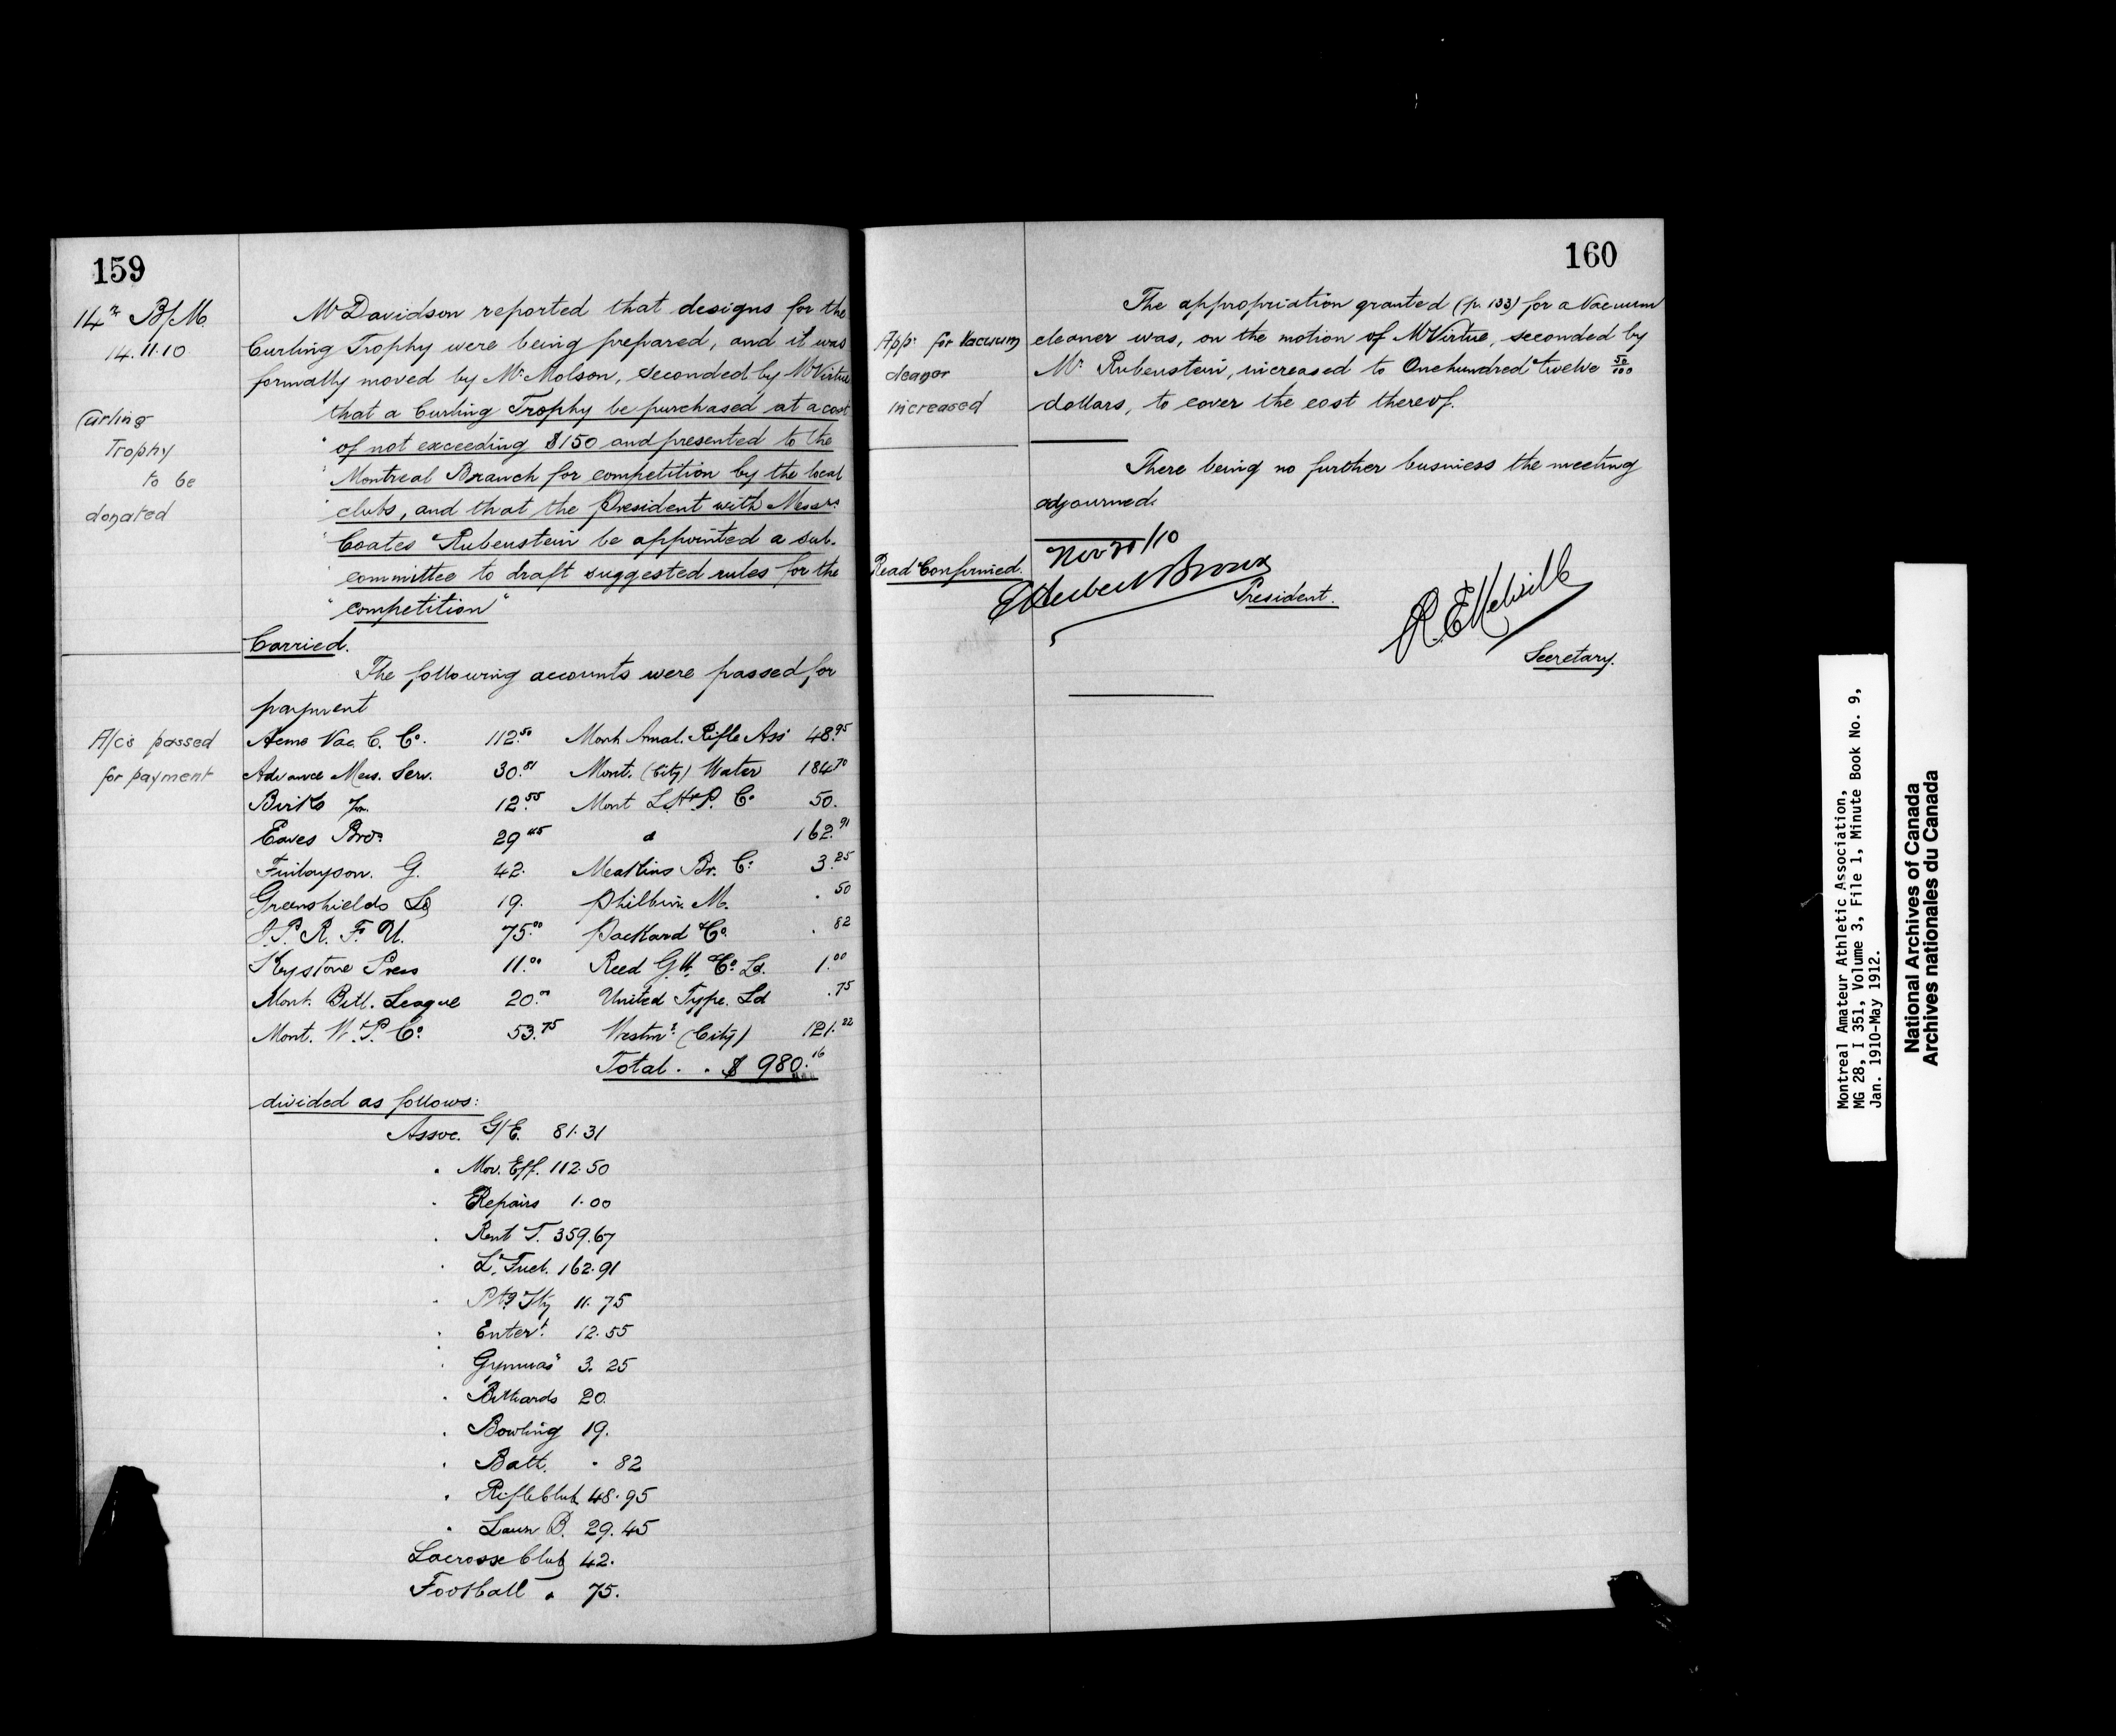 159
14th B/M.
14.11.10
Mr Davidson reported that designs for the
Curling Trophy were being prepared, and it was
formally moved by Mr. Molson, seconded by Mr Virtue
Curling
Trophy
to be
donated
that a Curling Trophy be purchased at a cost
" of not exceeding $150 and presented to the
" Montreal Branch for competition by the local
" clubs, and that the President with Messrs
" Coates & Rubenstein be appointed a sub-
committee to draft suggested rules for the
" competition"
Carried.
The following accounts were passed for
payment
A/cs passed
for payment
Acme Vac. C. Co. 112.50 Mont Amat. Rifle Ass 48.95
Advance Mess. Serv. 30.81 Mont. (City) Water 184.70
Birks 12.55 Mont L.H&P. Co 50.
Eaves Bros. 29.45 " 162.91
Finlayson. G. 42. Meakins Br. Co. 3.25
Greenshields Ld 19. Philbin M. .50
I.P.R.F.U. 75.00 Packard & Co. .82
Keystone Press 11.00 Reed G.H. & Co. Ld. 1.00
Mont. Bill. League 20.00 United Type. Ld .75
Mont. W. & P. Co. 53.75 Westmt. (City) 121.22
Total . . $ 980.16
divided as follows:
Assoc. G/E. 81.31
" Mov. Eff. 112.50
" Repairs 1.00
" Rent T. 359.67
" L. & Fuel. 162.91
" Ptg & Sty 11.75
" Entert. 12.55
" Gymnas" 3.25
" Billiards 20.
" Bowling 19.
" Batt. .82
" Rifle Club 48.95
" Lawn B. 29.45
Lacrosse Club 42.
Football " 75.
160
The appropriation granted (p. 133) for a Vacuum
App. for Vacuum
cleaner
increased
cleaner was, on the motion of Mr Virtue, seconded by
Mr. Rubenstein, increased to One hundred & twelve 50/100
dollars, to cover the cost thereof.
There being no further business the meeting
adjourned.
Read & Confirmed.
E Herbert Brown
President.
Secretary.
Montreal Amateur Athletic Association,
MG 28, I 351, Volume 3, File 1, Minute Book No. 9,
Jan. 1910-May 1912.
National Archives of Canada
Archives nationales du Canada